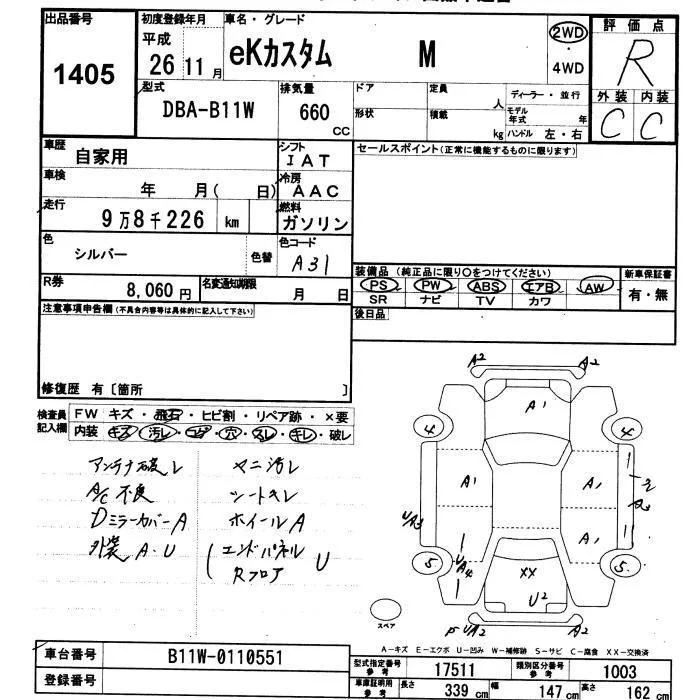 出品番号
1405
初度登録年月
平成
26 11 月
車名・グレード
eKカスタム M
2WD
・
4WD
評価点
R
外装 内装
C C
型式
DBA-B11W
排気量
660
CC
ドア
定員
人
ディーラー・並行
形状
積載
kg
モデル
年式
年
ハンドル 左・右
車歴
自家用
シフト
IAT
セールスポイント(正常に機能するものに限ります)
車検
年 月( 日)
冷房
AAC
走行
9万8千226 km
燃料
ガソリン
色
シルバー
色替
色コード
A31
装備品 (純正品に限り○をつけてください)
PS PW ABS エアB AW
SR ナビ TV カワ
新車保証書
有・無
R券
8,060円
名変通知期限
月 日
後日品
注意事項申告欄(不具合内容等は具体的に記入して下さい)
修復歴 有〔箇所 〕
検査員
記入欄
FW キズ・飛石・ヒビ割・リペア跡・×要
内装 キズ・汚レ・コゲ・穴・スレ・キレ・破レ
アンテナ破レ
A/C不良
DミラーカバーA
外装 A・U
マニ汚レ
シートキレ
ホイールA
エンドパネル
Rフロア
U
A2 A2
A1
4 4
A1 A1
2
A2
UA3
A1
U
A4
5 5
XX
U2
P UA2 A2
スペア
A-キズ E-エクボ U-凹み W-補修跡 S-サビ C-腐食 XX-交換済
車台番号
B11W-0110551
登録番号
型式指定番号
参考
17511
類別区分番号
参考
1003
車庫証明用
参考
長さ
339 cm
幅
147 cm
高さ
162 cm